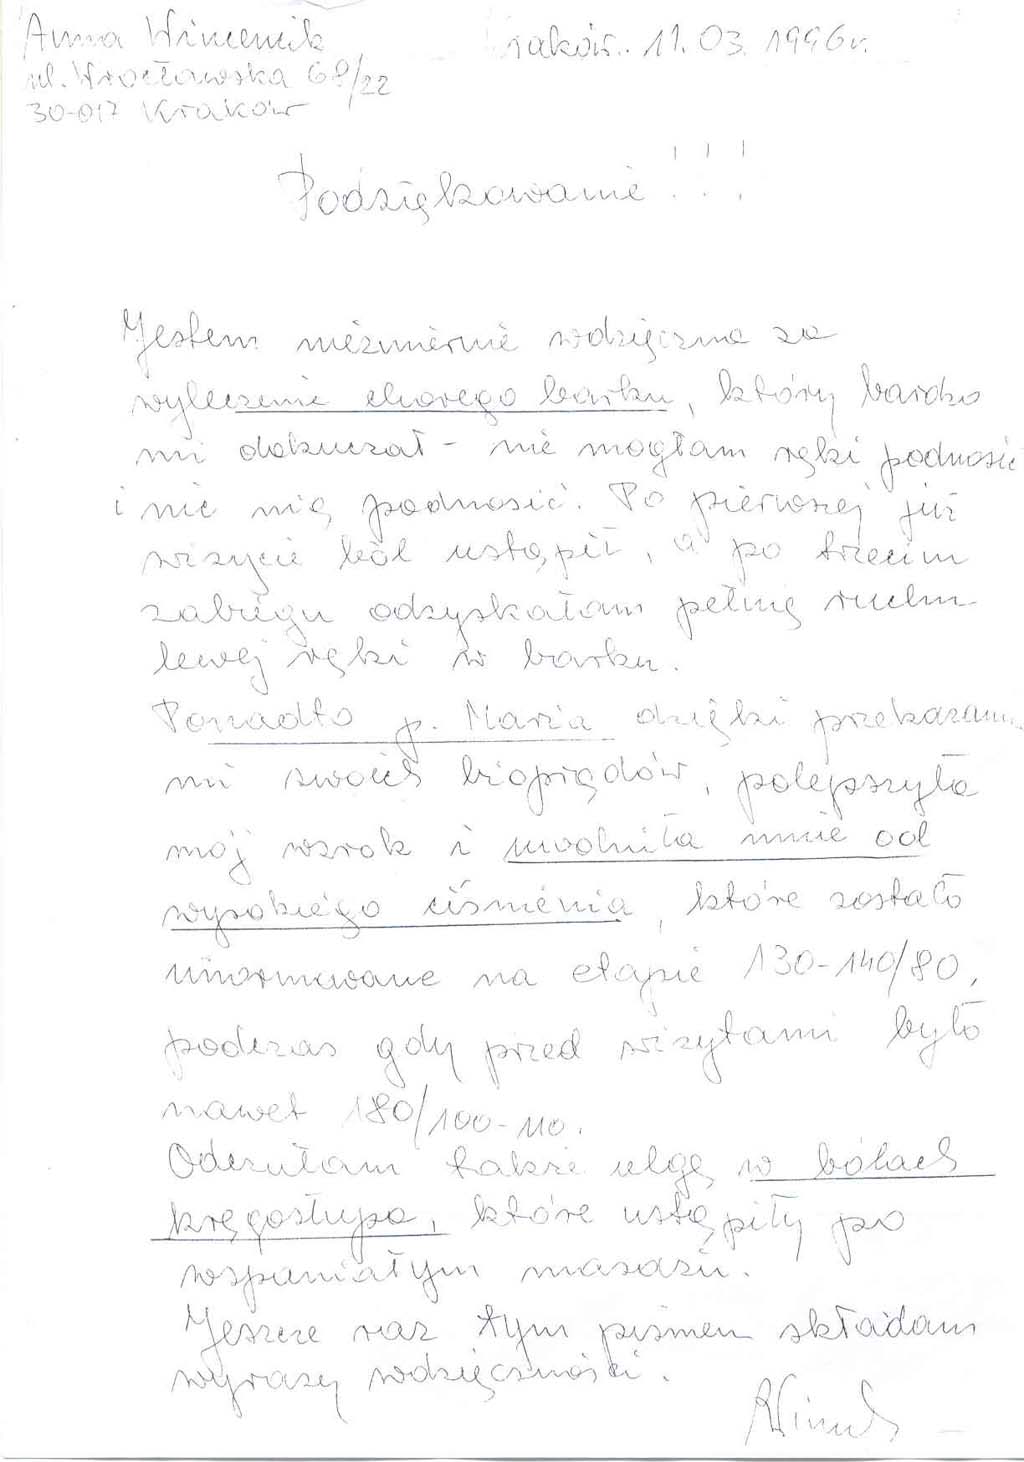 Anna
ul. Wrocławska 68/22
30-017 Kraków
Kraków.. 11.03.1996r.
Podziękowanie !!!
Jestem niezmiernie wdzięczna za
wyleczenie chorego barku, który bardzo
mi dokuczał - nie mogłam ręki podnosić
i nic nią podnosić. Po pierwszej już
wizycie ból ustąpił, a po trzecim
zabiegu odzyskałam pełnię ruchu
lewej ręki w barku.
Ponadto p. Maria dzięki przekazaniu
mi swoich bioprądów, polepszyła
mój wzrok i uwolniła mnie od
wysokiego ciśnienia, które zostało
unormowane na etapie 130-140/80,
podczas gdy przed wizytami było
nawet 180/100-110.
Odczułam także ulgę w bólach
kręgosłupa, które ustąpiły po
wspaniałym masażu.
Jeszcze raz tym pismem składam
wyrazy wdzięczności.